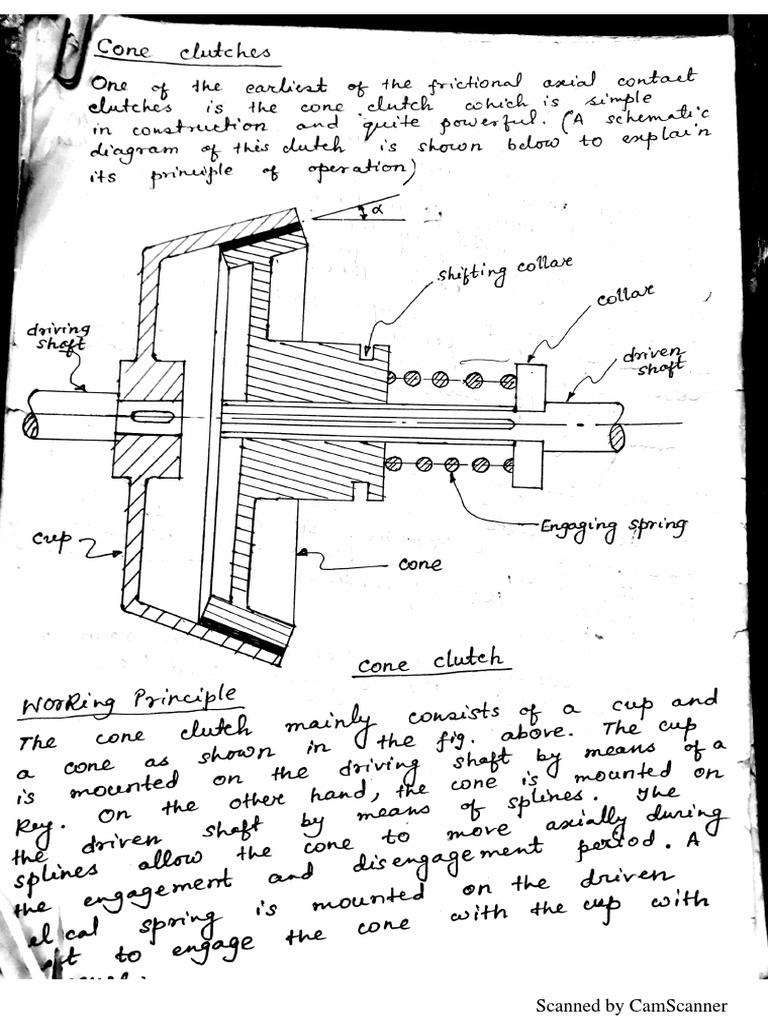 Cone clutches
One of the earliest of the frictional axial contact
clutches is the cone clutch which is simple
in construction and quite powerful. (A schematic
diagram of this clutch is shown below to explain
its principle of operation)
α
shifting collar
collar
driving
shaft
driven
shaft
Engaging spring
cup
cone
Cone clutch
Working Principle
The cone clutch mainly consists of a cup and
a cone as shown in the fig. above. The cup
is mounted on the driving shaft by means of a
Key. On the other hand, the cone is mounted on
the driven shaft by means of splines. The
splines allow the cone to move axially during
the engagement and disengagement period. A
cal spring is mounted on the driven
to engage the cone with the cup with
Scanned by CamScanner